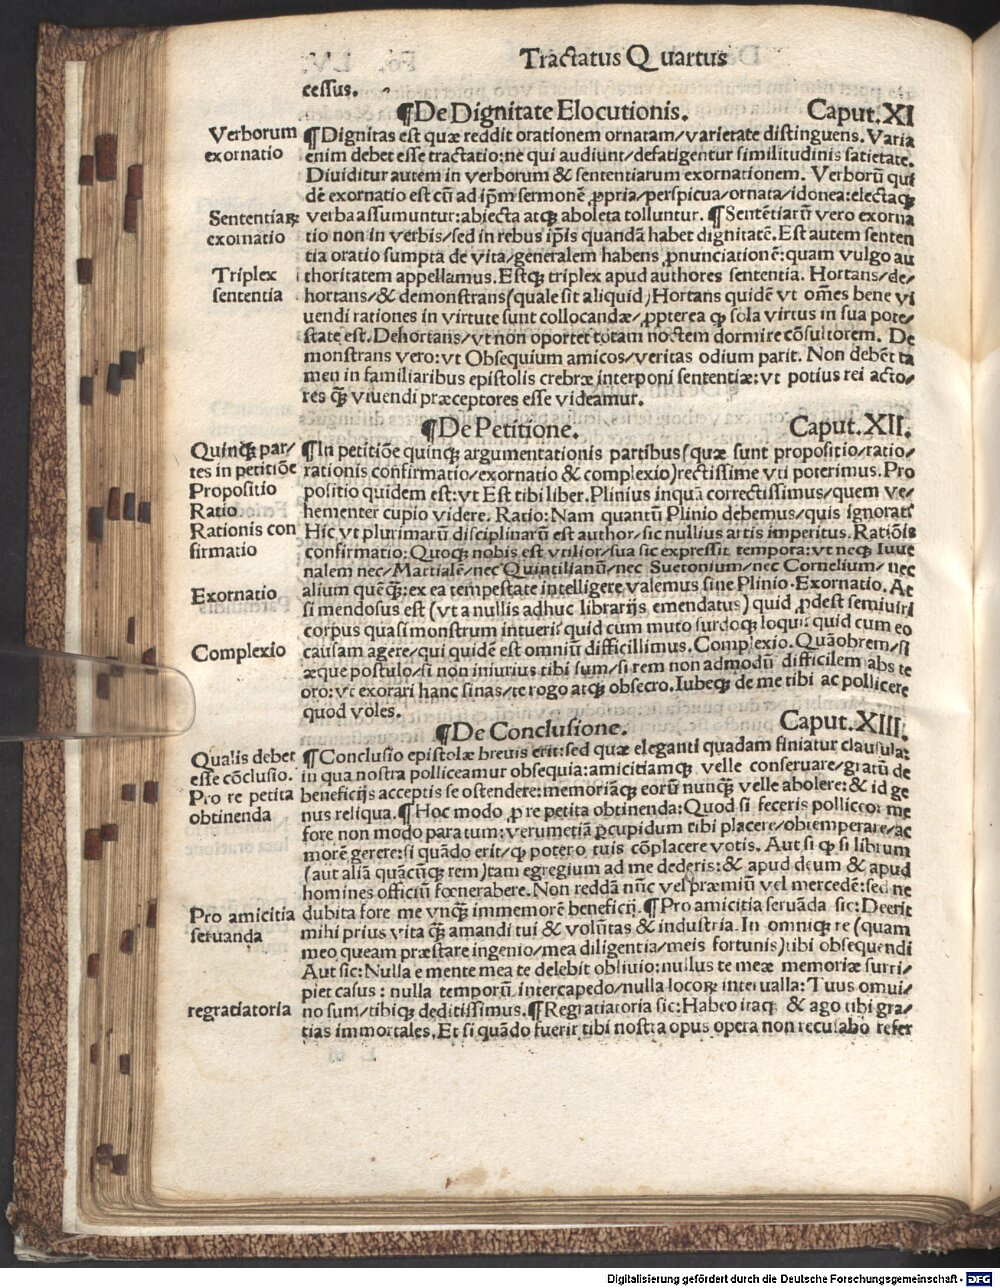 Tractatus Q uartus
cessus.
¶De Dignitate Elocutionis. Caput.XI
Verborum exornatio
¶Dignitas est quæ reddit orationem ornatam/varietate distinguens. Varia
enim debet esse tractatio:ne qui audiunt/defatigentur similitudinis satietate.
Diuiditur autem in verborum & sententiarum exornationem. Verborū qui
dē exornatio est cū ad ip̄m sermonē ꝓpria/perspicua/ornata/idonea:electaqꝫ
Sententiaꝝ exornatio
verba assumuntur:abiecta atqꝫ aboleta tolluntur. ¶Sentētiarū vero exorna
tio non in verbis/sed in rebus ip̄is quandā habet dignitatē. Est autem senten
tia oratio sumpta de vita/generalem habens ꝓnunciationē:quam vulgo au
Triplex sententia
thoritatem appellamus. Estqꝫ triplex apud authores sententia. Hortans/de/
hortans/& demonstrans(quale sit aliquid)Hortans quidē vt om̄es bene vi
uendi rationes in virtute sunt collocandæ/ꝓpterea qꝫ sola virtus in sua pote/
state est. Dehortans/vt non oportet totam noctem dormire cōsultorem. De
monstrans vero:vt Obsequium amicos/veritas odium parit. Non debēt ta
men in familiaribus epistolis crebræ interponi sententiæ:vt potius rei acto/
res qꝫ̄ viuendi præceptores esse videamur.
¶De Petitione. Caput.XII.
Quinqꝫ par/
tes in petitiōe
¶In petitiōe quinqꝫ argumentationis partibus(quæ sunt propositio/ratio/
rationis confirmatio/exornatio & complexio)rectissime vti poterimus. Pro
Propositio
positio quidem est:vt Est tibi liber. Plinius inquā correctissimus/quem ve/
Ratio
hementer cupio videre. Ratio:Nam quantū Plinio debemus/quis ignorat?
Rationis con
firmatio
Hic vt plurimarū disciplinarū est author/sic nullius artis imperitus. Ratiōis
confirmatio:Quoqꝫ nobis est vtilior/sua sic expressit tempora:vt neqꝫ Iuue
nalem nec/Martialē/nec Quintilianū/nec Suetonium/nec Cornelium/nec
Exornatio
alium quēqꝫ̄:ex ea tempestate intelligere valemus sine Plinio. Exornatio. At
si mendosus est(vt a nullis adhuc librarijs emendatus)quid ꝓdest semiuiri
corpus quasi monstrum intueri? quid cum muto surdoqꝫ loqui? quid cum eo
Complexio
causam agere/qui quidē est omniū difficillimus. Complexio. Quāobrem/si
æque postulo/si non iniurius tibi sum/si rem non admodū difficilem abs te
oro:vt exorari hanc sinas/te rogo atqꝫ obsecro. Iubeqꝫ de me tibi ac pollicere
quod voles.
¶De Conclusione. Caput.XIII.
Qualis debet
esse cōclusio.
¶Conclusio epistolæ breuis erit:sed quæ eleganti quadam finiatur clausula:
in qua nostra polliceamur obsequia:amicitiamqꝫ velle conseruare/gratū de
Pro re petita
obtinenda
beneficijs acceptis se ostendere:memoriāqꝫ eorū nunqꝫ̄ velle abolere:& id ge
nus reliqua. ¶Hoc modo ꝓ re petita obtinenda:Quod si feceris polliceor me
fore non modo paratum:verumetiā ꝑcupidum tibi placere/obtemperare/ac
morē gerere:si quādo erit/qꝫ potero tuis cōplacere votis. Aut si qꝫ si librum
(aut aliā quācūqꝫ rem)tam egregium ad me dederis:& apud deum & apud
homines officiū fœnerabere. Non reddā nūc vel præmiū vel mercedē:sed ne
Pro amicitia
seruanda
dubita fore me vnqꝫ̄ immemorē beneficij. ¶Pro amicitia seruāda sic:Deerit
mihi prius vita qꝫ̄ amandi tui & volūtas & industria. In omniqꝫ re(quam
meo queam præstare ingenio/mea diligentia/meis fortunis)tibi obsequendi
Aut sic:Nulla e mente mea te delebit obliuio:nullus te meæ memoriæ surri/
piet casus:nulla temporū intercapedo/nulla locoꝝ interualla:Tuus omni/
regratiatoria
no sum/tibiqꝫ deditissimus. ¶Regratiatoria sic:Habeo itaqꝫ & ago tibi gra/
tias immortales. Et si quādo fuerit tibi nostra opus opera non recusabo refer
Digitalisierung gefördert durch die Deutsche Forschungsgemeinschaft - DFG